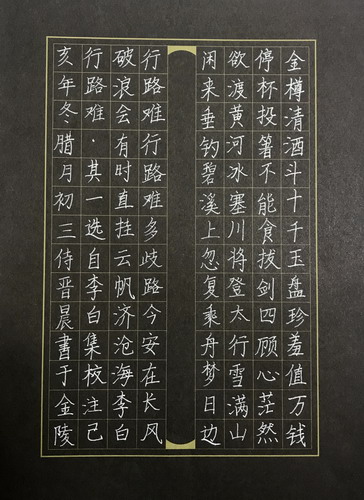 金樽清酒斗十千玉盘珍羞值万钱
停杯投箸不能食拔剑四顾心茫然
欲渡黄河冰塞川将登太行雪满山
闲来垂钓碧溪上忽复乘舟梦日边
行路难行路难多歧路今安在长风
破浪会有时直挂云帆济沧海李白
行路难·其一选自李白集校注己
亥年冬腊月初三侍晋晨書于金陵